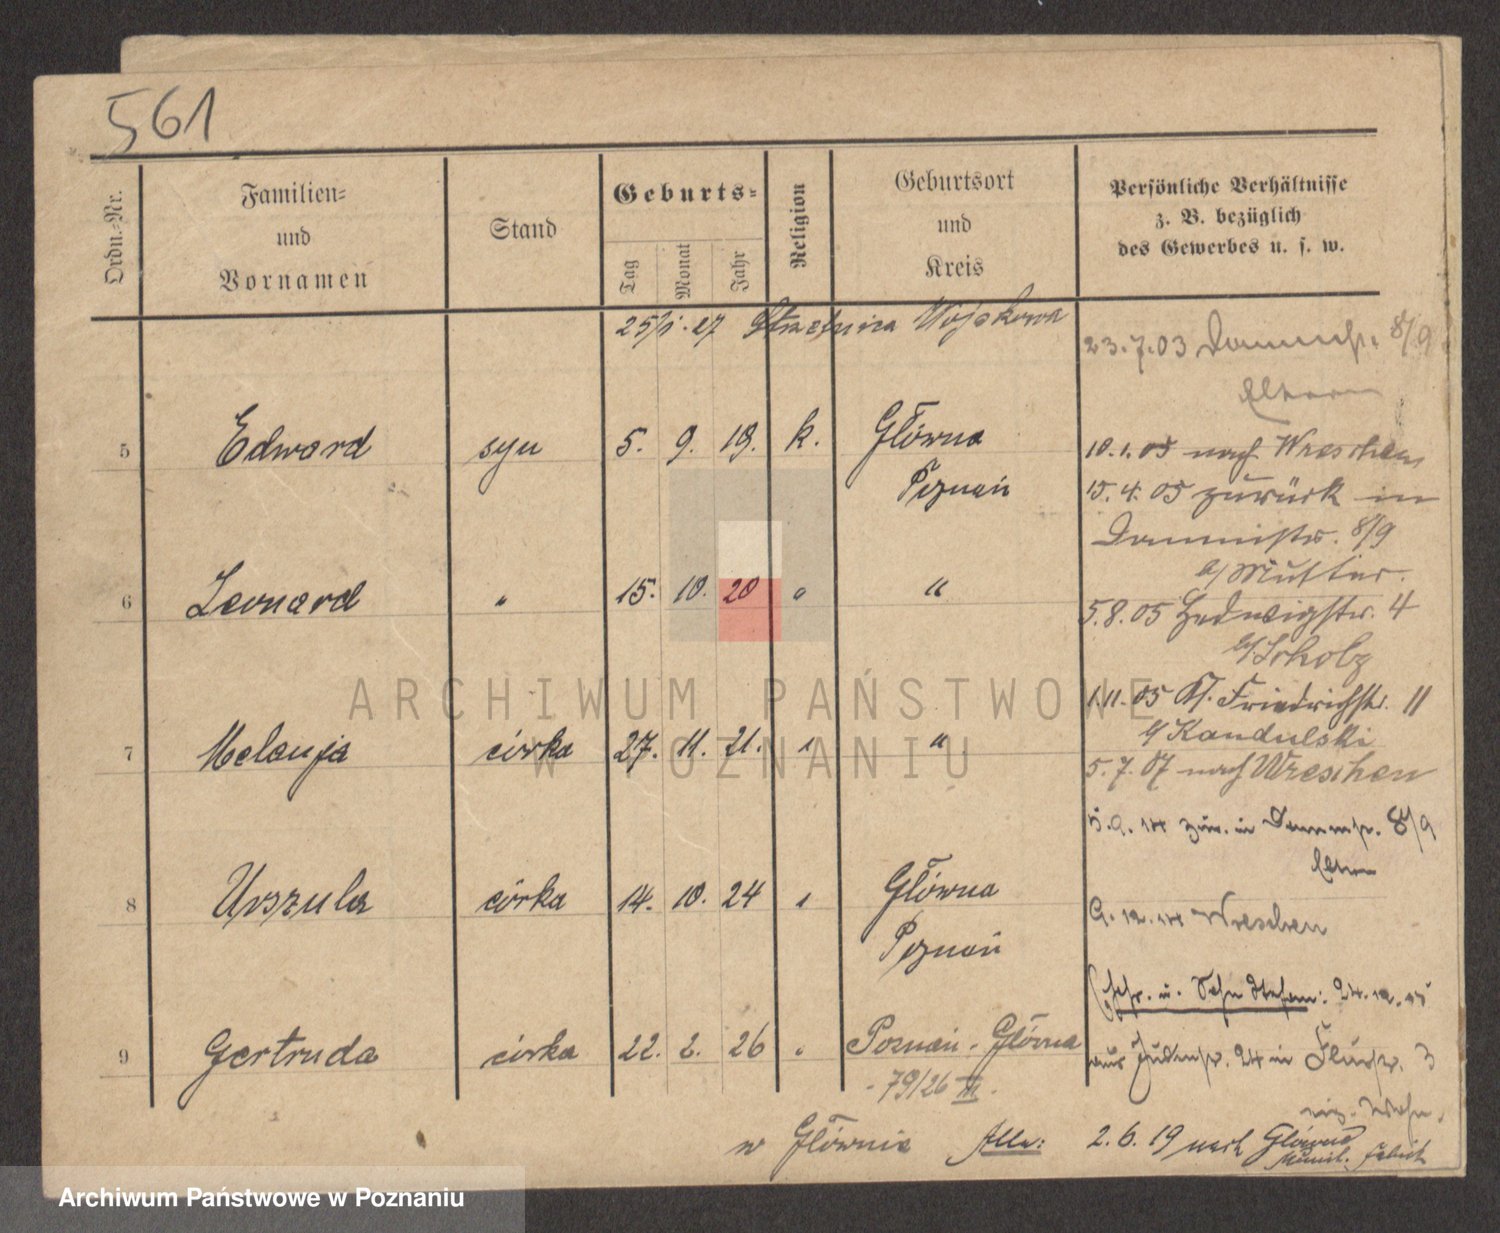 561
Ordn.-Nr.
Familien-
und
Vornamen
Stand
Geburts-
Tag
Monat
Jahr
Religion
Geburtsort
und
Kreis
Persönliche Verhältnisse
z. B. bezüglich
des Gewerbes u. s. w.
Strzelnica Wojskowa
23.7.03 8/9
Eltern
5 Edward syn 5. 9. 19. k. Główna
Poznań
10.1.05 nach Wreschen
15.4.05 zurück in
8/9
b/ Mutter.
6 Leonard " 15. 10. 20 " "
5.8.05 Hedwigstr. 4
b/ Scholz
1.11.05 Kl. Friedrichstr. 11
b/ Kandulski
7 Melanja córka 27. 11. 21. " "
5.7.07 nach Wreschen
zur. in 8/9
Eltern
8 Urszula córka 14. 10. 24 " Główna
Poznań
Wreschen
u. Sohn Stefan:
9 Gertruda córka 22. 2. 26 " Poznań - Główna
- 79/26 III -
aus Judenstr. 24 in Flurstr. 3
w Głównie Alle: 2.6.19 nach Główno
ARCHIWUM PAŃSTWOWE
W POZNANIU
Archiwum Państwowe w Poznaniu